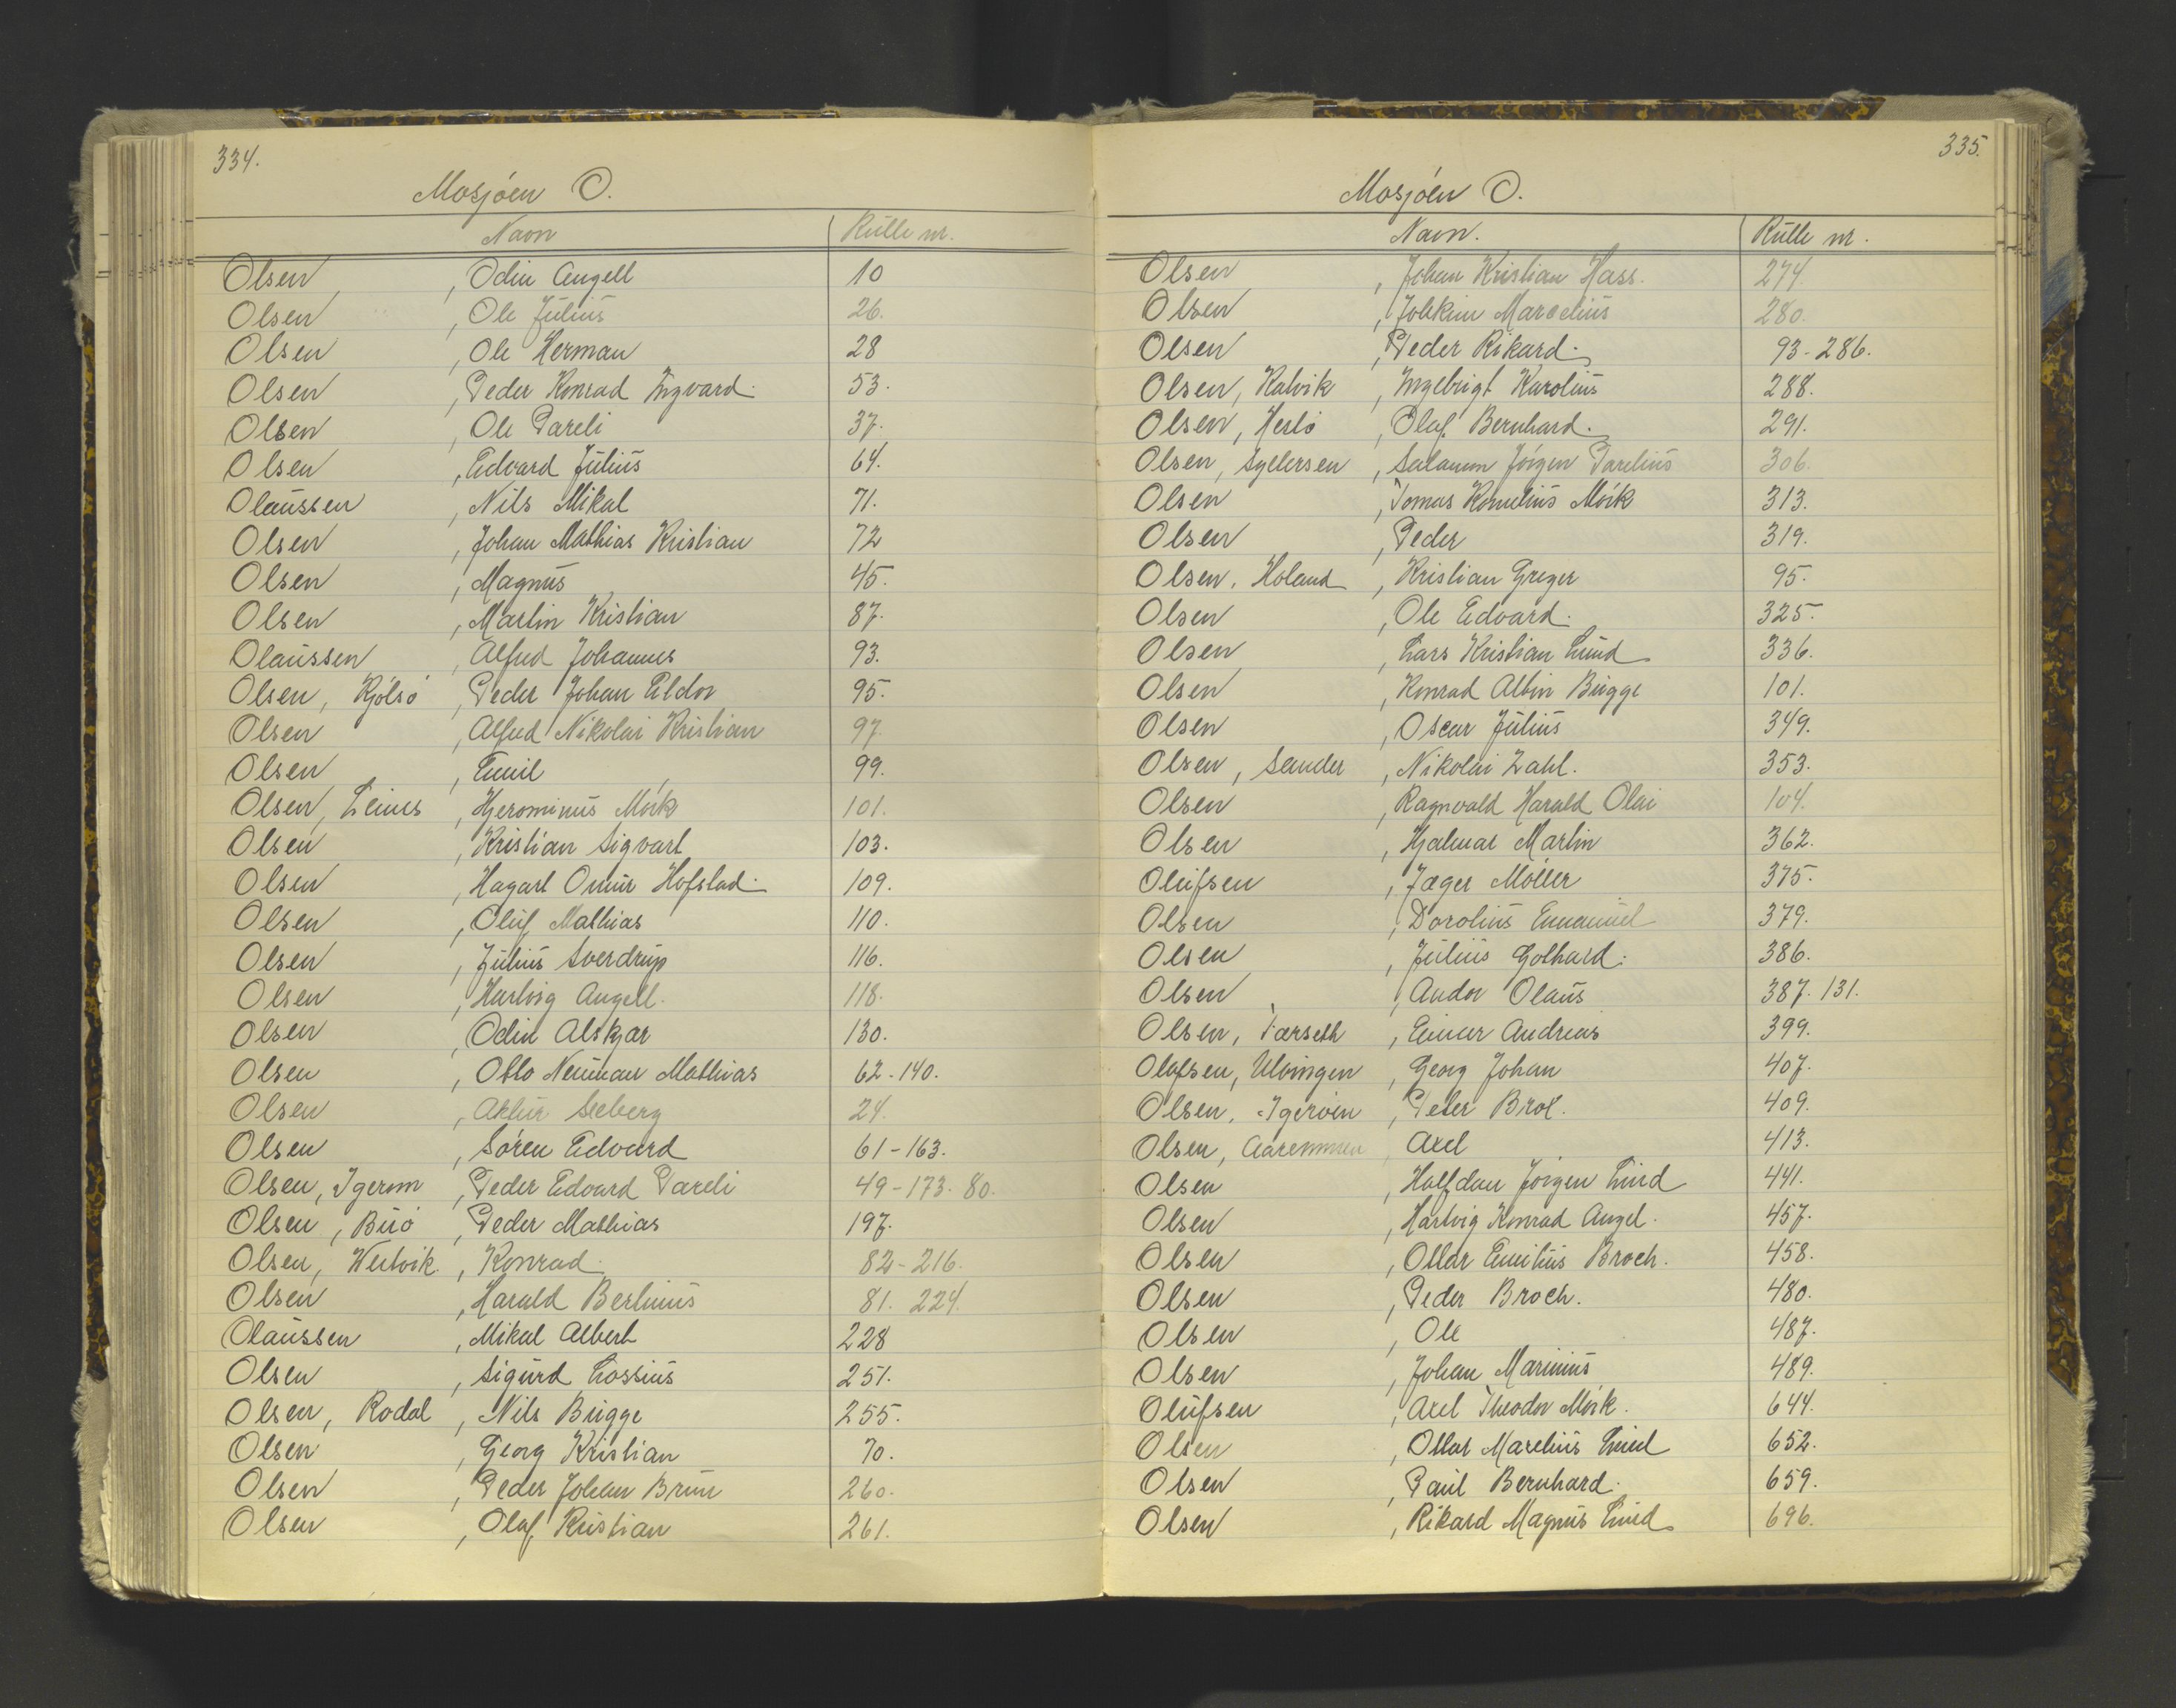 334.
Mosjöen O.
Navn Rulle nr.
Olsen , Odin Angell 10
Olsen , Ole Julius 26.
Olsen , Ole Herman 28
Olsen , Peder Konrad Ingvard. 53.
Olsen , Ole Pareli 37.
Olsen , Edvard Julius 64.
Olaussen , Nils Mikal 71.
Olsen , Johan Mathias Kristian 72
Olsen , Magnus 45.
Olsen , Martin Kristian 87.
Olaussen , Alfred Johannes 93.
Olsen, Kjölsö , Peder Johan Eldor 95.
Olsen , Alfred Nikolai Kristian 97.
Olsen , Emil 99.
Olsen, Leines , Hjerominus Mörk 101.
Olsen , Kristian Sigvart 103.
Olsen , Hagart Onur Hofstad. 109.
Olsen , Oluf Mathias 110.
Olsen , Julius Sverdrup 116.
Olsen , Hartvig Angell. 118.
Olsen , Odin Alskjar 130.
Olsen , Otto Neuman Mathias 62-140.
Olsen , Artur Seeberg 24.
Olsen , Sören Edvard 61-163.
Olsen, Igerom , Peder Edvard Pareli 49-173-80.
Olsen, Buö , Peder Mathias 197.
Olsen, , Konrad. 82-216.
Olsen , Harald Bertinus 81. 224.
Olaussen , Mikal Albert 228
Olsen , Sigurd Lossius 251.
Olsen, Rodal , Nils Bugge 255.
Olsen , Georg Kristian 70.
Olsen , Peder Johan Brun 260.
Olsen , Olaf Kristian 261.
335.
Mosjöen O.
Navn. Rulle nr.
Olsen , Johan Kristian Hass. 274.
Olsen , Joakim Marselius 280.
Olsen , Peder Rikard. 93-286.
Olsen, Kalvik , Ingebrigt Karolius 288.
Olsen, Herlö , Olaf Bernhard. 291.
Olsen, , Salamon Jörgen Parelius 306.
Olsen , Tomas Kornelius Mörk 313.
Olsen , Peder 319.
Olsen, Holand , Kristian Greger 95.
Olsen , Ole Edvard. 325.
Olsen , Lars Kristian Lund 336.
Olsen , Konrad Albin Bugge 101.
Olsen , Oscar Julius 349.
Olsen, Sander , Nikolai Zahl. 353.
Olsen , Ragnvald Harald Olai 104.
Olsen , Hjalmar Martin 362.
Olufsen , Jæger Möller 375.
Olsen , Dorolius Emanuel 379.
Olsen , Julius Gothard. 386.
Olsen , Andor Olaus 387. 131.
Olsen, Tærseth , Einar Andreas 399.
Olafsen, Ulvingen , Georg Johan 407.
Olsen, Igeröen , Peter Brok. 409.
Olsen, , Axel 413.
Olsen , Halfdan Jörgen Lund 441.
Olsen , Hartvig Konrad Angel. 457.
Olsen , Ottar Emilius Broch. 458.
Olsen , Peder Broch. 480.
Olsen , Ole 487.
Olsen , Johan Marinius 489.
Olufsen , Axel Theodor Mörk. 644.
Olsen , Ottar Marelius Lund 652.
Olsen , Paul Bernhard. 659.
Olsen , Rikard Magnus Lund 696.